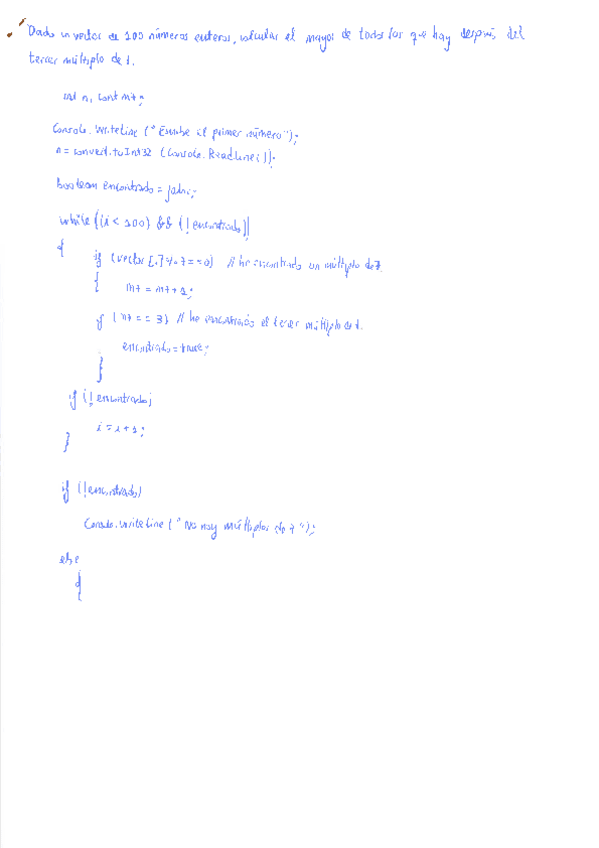 Dado un vector de 100 números enteros, calcular el mayor de todos los que hay después del
tercer múltiplo de 7.
int n, cont m7;
Console.WriteLine ("Escribe el primer número");
n = convert.toInt32 (Console.ReadLine());
boolean encontrado = false;
while ((i < 100) && (!encontrado))
{
if (vector [i] % 7 == 0) // he encontrado un múltiplo de 7.
{
m7 = m7 + 1;
if (m7 == 3) // he encontrado el tercer múltiplo de 7.
encontrado = true;
}
if (!encontrado)
i = i + 1;
}
if (!encontrado)
Console.WriteLine ("No hay múltiplos de 7");
else
{